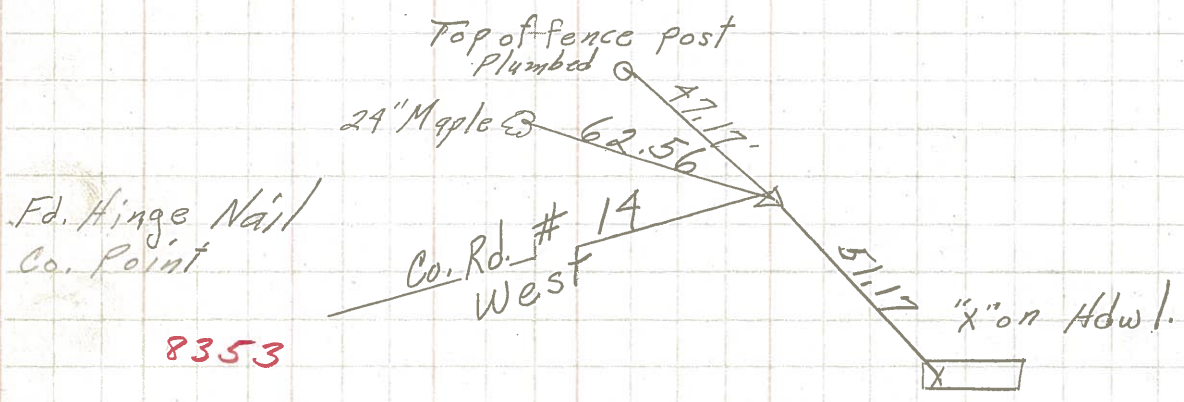 Top of fence post
Plumbed
47.17
24" Maple
62.56
Fd. Hinge Nail
Co. Point
Co. Rd. # 14
West
51.17
"X" on Hdwl.
X
8353